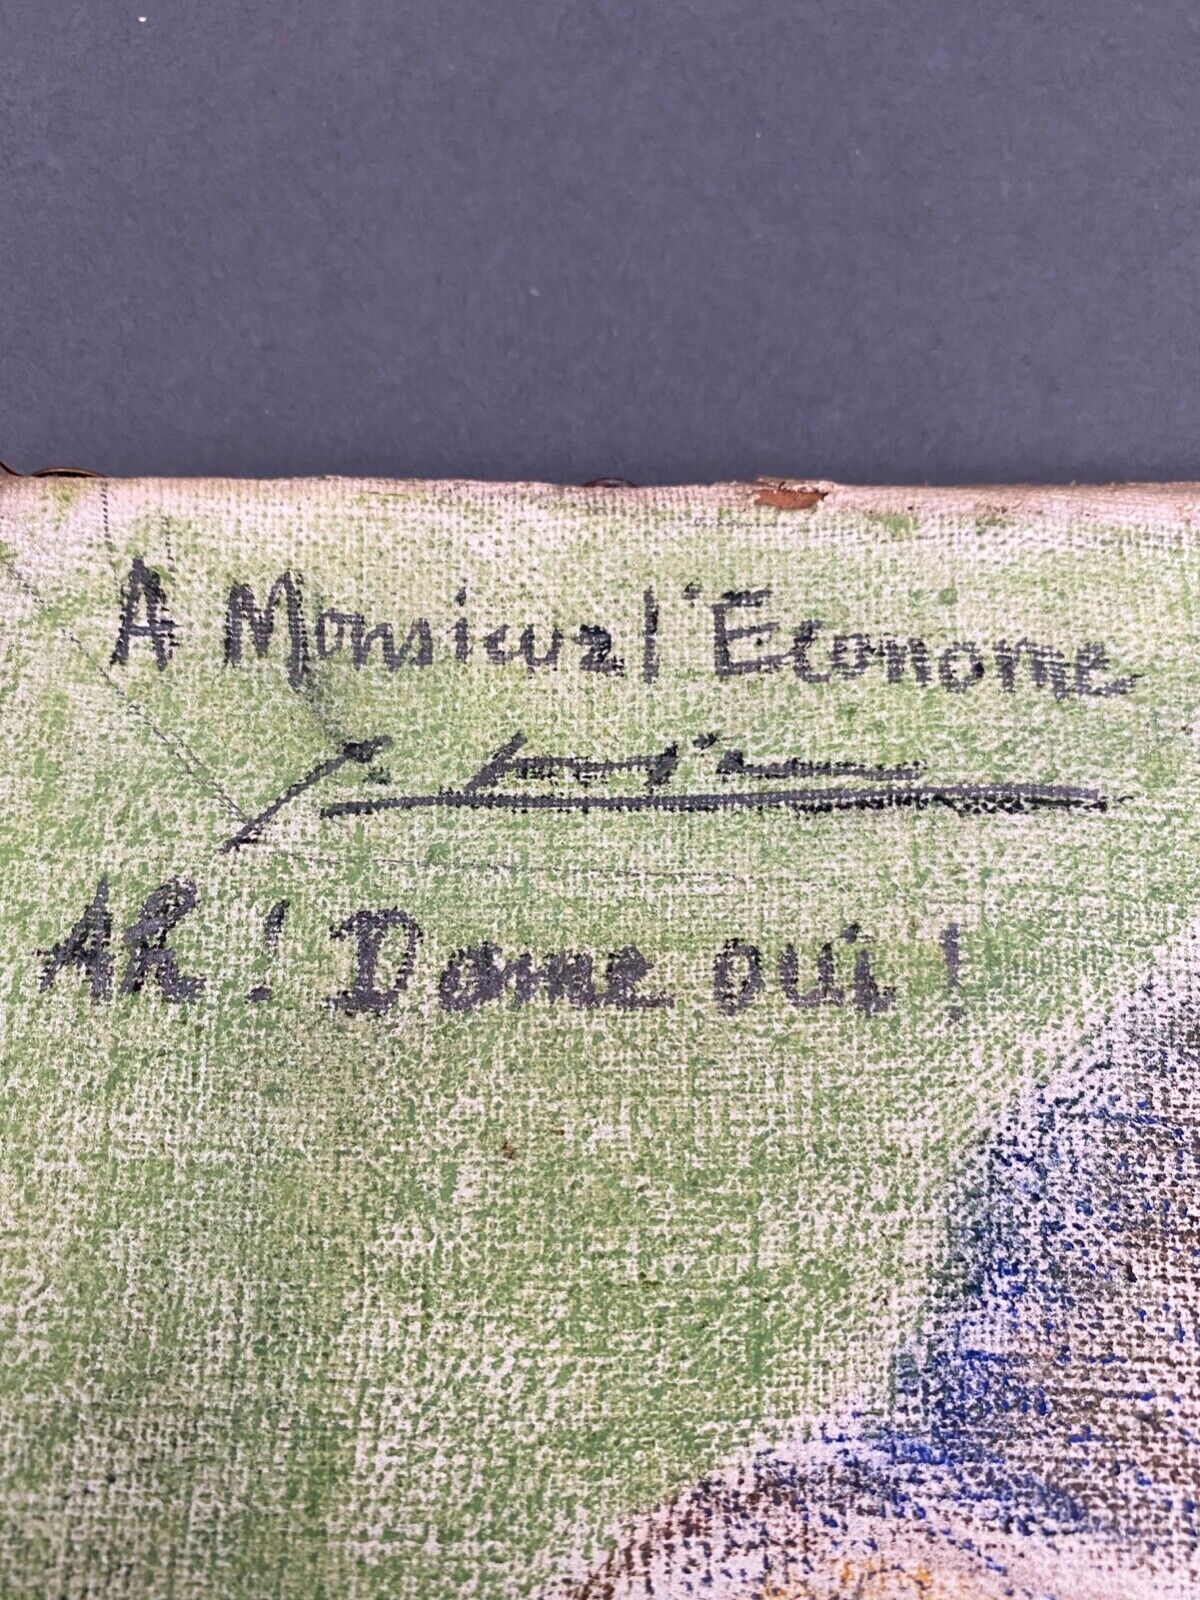 A Monsieur l'Econome
Ah ! Dame oui !